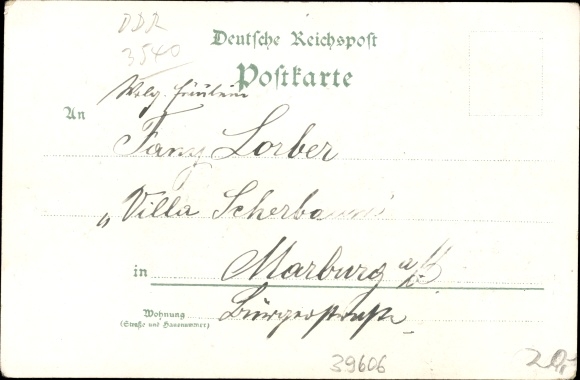 DDR
3540
Deutsche Reichspost
Postkarte
Wolg. Fräulein
An
Fany Lorber
„Villa Scherbaum"
in Marburg a/
Wohnung
(Straße und Hausnummer)
Bürgerstraße
39606
20,-